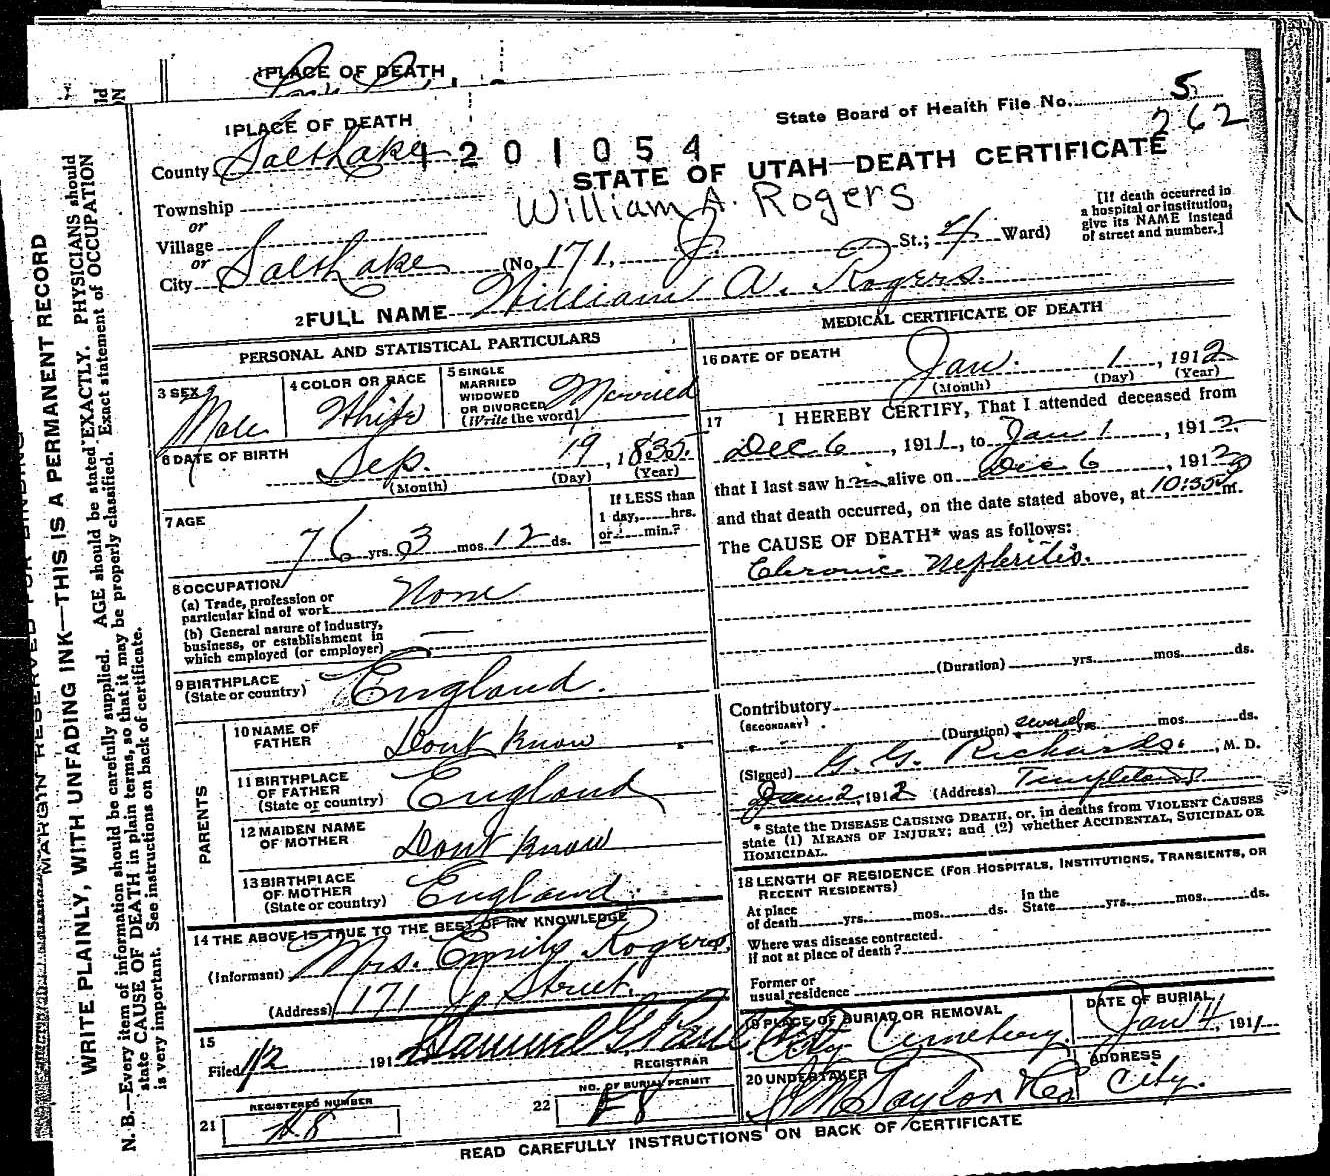 1 PLACE OF DEATH
1 PLACE OF DEATH
State Board of Health File No. 5
262
County Salt Lake
1201054
STATE OF UTAH—DEATH CERTIFICATE
William A. Rogers
Township
or
Village
or
City Salt Lake (No. 171, J. St.; 4 Ward)
[If death occurred in
a hospital or institution,
give its NAME instead
of street and number.]
2 FULL NAME William A. Rogers.
PERSONAL AND STATISTICAL PARTICULARS
3 SEX Male
4 COLOR OR RACE White
5 SINGLE
MARRIED
WIDOWED
OR DIVORCED
(Write the word) Married
6 DATE OF BIRTH
Sep. 19, 1835.
(Month) (Day) (Year)
7 AGE
76 yrs. 3 mos. 12 ds.
If LESS than
1 day, hrs.
or min.?
8 OCCUPATION
(a) Trade, profession or
particular kind of work None
(b) General nature of industry,
business, or establishment in
which employed (or employer)
9 BIRTHPLACE
(State or country) England.
PARENTS
10 NAME OF
FATHER Dont know
11 BIRTHPLACE
OF FATHER
(State or country) England
12 MAIDEN NAME
OF MOTHER Dont know
13 BIRTHPLACE
OF MOTHER
(State or country) England.
14 THE ABOVE IS TRUE TO THE BEST OF MY KNOWLEDGE
(Informant) Mrs. Emily Rogers,
(Address) 171 J Street.
15
Filed 1/2 1912 Samuel G. Paul
REGISTRAR
REGISTERED NUMBER
21
NO. OF BURIAL PERMIT
22
MEDICAL CERTIFICATE OF DEATH
16 DATE OF DEATH
Jan. 1, 1912
(Month) (Day) (Year)
17 I HEREBY CERTIFY, That I attended deceased from
Dec 6, 1911, to Jan 1, 1912.
that I last saw him alive on Dec 6, 1912
and that death occurred, on the date stated above, at 10:35 m.
The CAUSE OF DEATH* was as follows:
Chronic Nephritis.
(Duration) yrs. mos. ds.
Contributory
(SECONDARY)
(Duration) several yrs. mos. ds.
(Signed) G. G. Richards, M. D.
Jan 2, 1912 (Address) Templeton
* State the DISEASE CAUSING DEATH, or, in deaths from VIOLENT CAUSES
state (1) MEANS OF INJURY; and (2) whether ACCIDENTAL, SUICIDAL OR
HOMICIDAL.
18 LENGTH OF RESIDENCE (FOR HOSPITALS, INSTITUTIONS, TRANSIENTS, OR
RECENT RESIDENTS)
At place
of death yrs. mos. ds.
In the
State yrs. mos. ds.
Where was disease contracted,
if not at place of death?
Former or
usual residence
19 PLACE OF BURIAL OR REMOVAL
City Cemetery.
DATE OF BURIAL
Jan 4, 1911
20 UNDERTAKER
Taylor & Co
ADDRESS
City.
READ CAREFULLY INSTRUCTIONS ON BACK OF CERTIFICATE
MARGIN RESERVED FOR BINDING
WRITE PLAINLY, WITH UNFADING INK—THIS IS A PERMANENT RECORD
N. B.—Every item of information should be carefully supplied. AGE should be stated EXACTLY. PHYSICIANS should
state CAUSE OF DEATH in plain terms, so that it may be properly classified. Exact statement of OCCUPATION
is very important. See instructions on back of certificate.